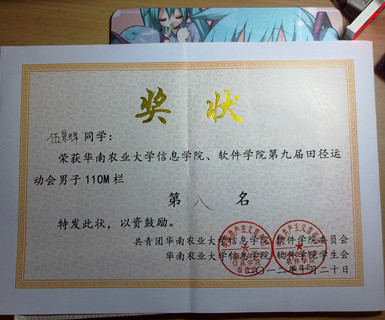 奖状
同学：
荣获华南农业大学信息学院、软件学院第九届田径运
动会男子110M栏
第八名
特发此状，以资鼓励。
共青团华南农业大学信息学院 软件学院委员会
华南农业大学信息学院 软件学院学生会
二〇一二年十月二十日